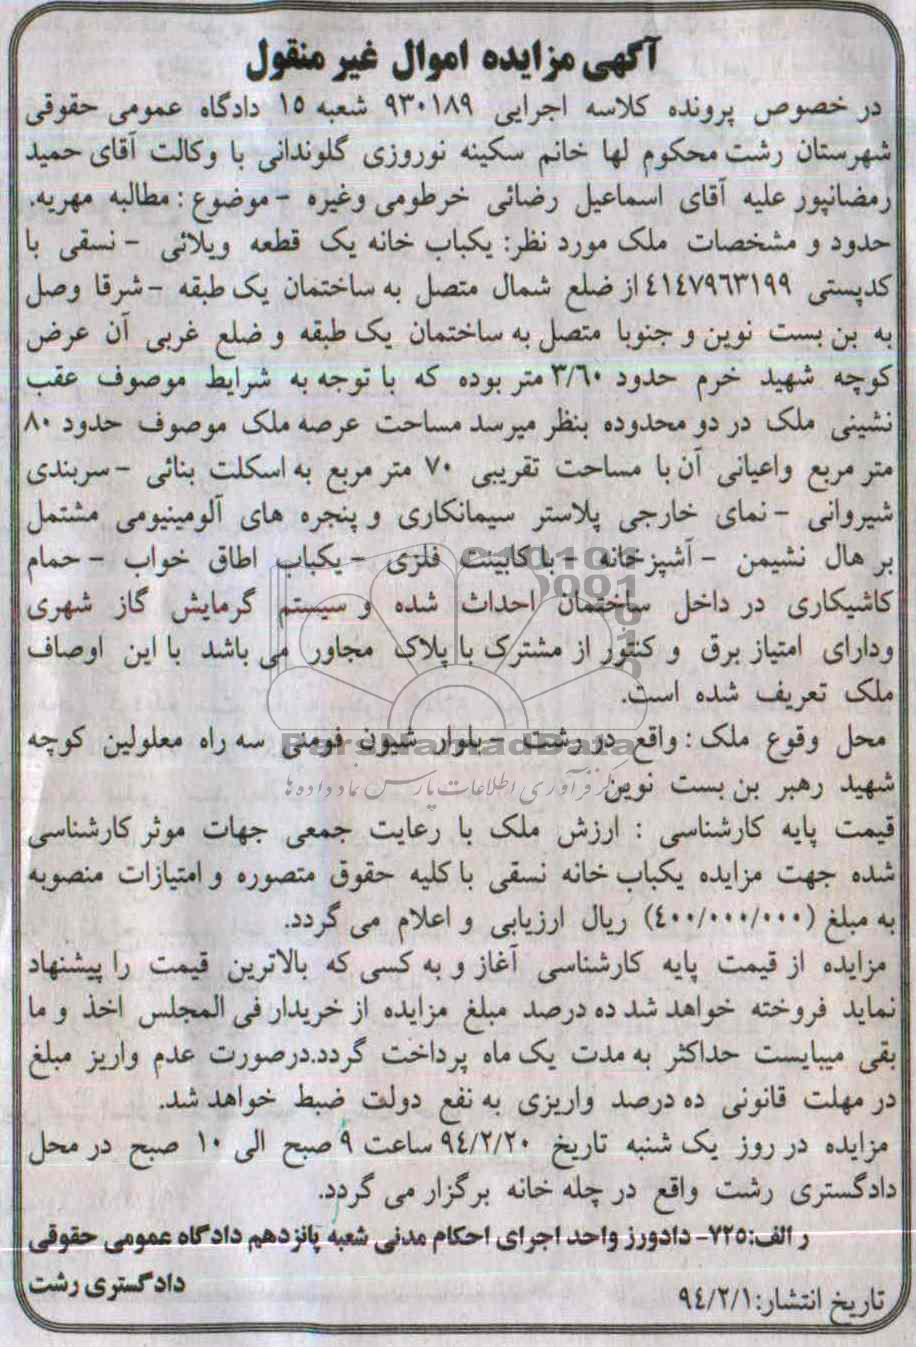 آگهی مزایده اموال غیر منقول
در خصوص پرونده کلاسه اجرایی ۹۳۰۱۸۹ شعبه ۱۵ دادگاه عمومی حقوقی
شهرستان رشت محکوم لها خانم سکینه نوروزی گلوندانی با وکالت آقای حمید
رمضانپور علیه آقای اسماعیل رضائی خرطومی وغیره - موضوع : مطالبه مهریه.
حدود و مشخصات ملک مورد نظر: یکباب خانه یک قطعه ویلائی - نسقی با
کدپستی ۴۱۴۷۹۶۳۱۹۹ از ضلع شمال متصل به ساختمان یک طبقه - شرقا وصل
به بن بست نوین و جنوبا متصل به ساختمان یک طبقه و ضلع غربی آن عرض
کوچه شهید خرم حدود ۳/۶۰ متر بوده که با توجه به شرایط موصوف عقب
نشینی ملک در دو محدوده بنظر میرسد مساحت عرصه ملک موصوف حدود ۸۰
متر مربع واعیانی آن با مساحت تقریبی ۷۰ متر مربع به اسکلت بنائی - سربندی
شیروانی - نمای خارجی پلاستر سیمانکاری و پنجره های آلومینیومی مشتمل
بر هال نشیمن - آشپزخانه با کابینت فلزی - یکباب اطاق خواب - حمام
کاشیکاری در داخل ساختمان احداث شده و سیستم گرمایش گاز شهری
ودارای امتیاز برق و کنتور از مشترک با پلاک مجاور می باشد با این اوصاف
ملک تعریف شده است.
محل وقوع ملک : واقع در رشت - بلوار شیون فومنی سه راه معلولین کوچه
ParsNamadData
شهید رهبر بن بست نوین
مرکز فرآوری اطلاعات پارس نماد داده ها
قیمت پایه کارشناسی : ارزش ملک با رعایت جمعی جهات موثر کارشناسی
شده جهت مزایده یکباب خانه نسقی با کلیه حقوق متصوره و امتیازات منصوبه
به مبلغ (۴۰۰/۰۰۰/۰۰۰) ریال ارزیابی و اعلام می گردد.
مزایده از قیمت پایه کارشناسی آغاز و به کسی که بالاترین قیمت را پیشنهاد
نماید فروخته خواهد شد ده درصد مبلغ مزایده از خریدار فی المجلس اخذ و ما
بقی میبایست حداکثر به مدت یک ماه پرداخت گردد.درصورت عدم واریز مبلغ
در مهلت قانونی ده درصد واریزی به نفع دولت ضبط خواهد شد.
مزایده در روز یک شنبه تاریخ ۹۴/۲/۲۰ ساعت ۹ صبح الی ۱۰ صبح در محل
دادگستری رشت واقع در چله خانه برگزار می گردد.
ر الف:۷۲۵- دادورز واحد اجرای احکام مدنی شعبه پانزدهم دادگاه عمومی حقوقی
دادگستری رشت
تاریخ انتشار:۹۴/۲/۱